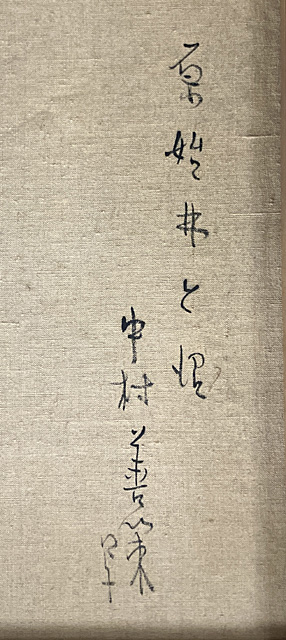 原始林と畑
中村善策